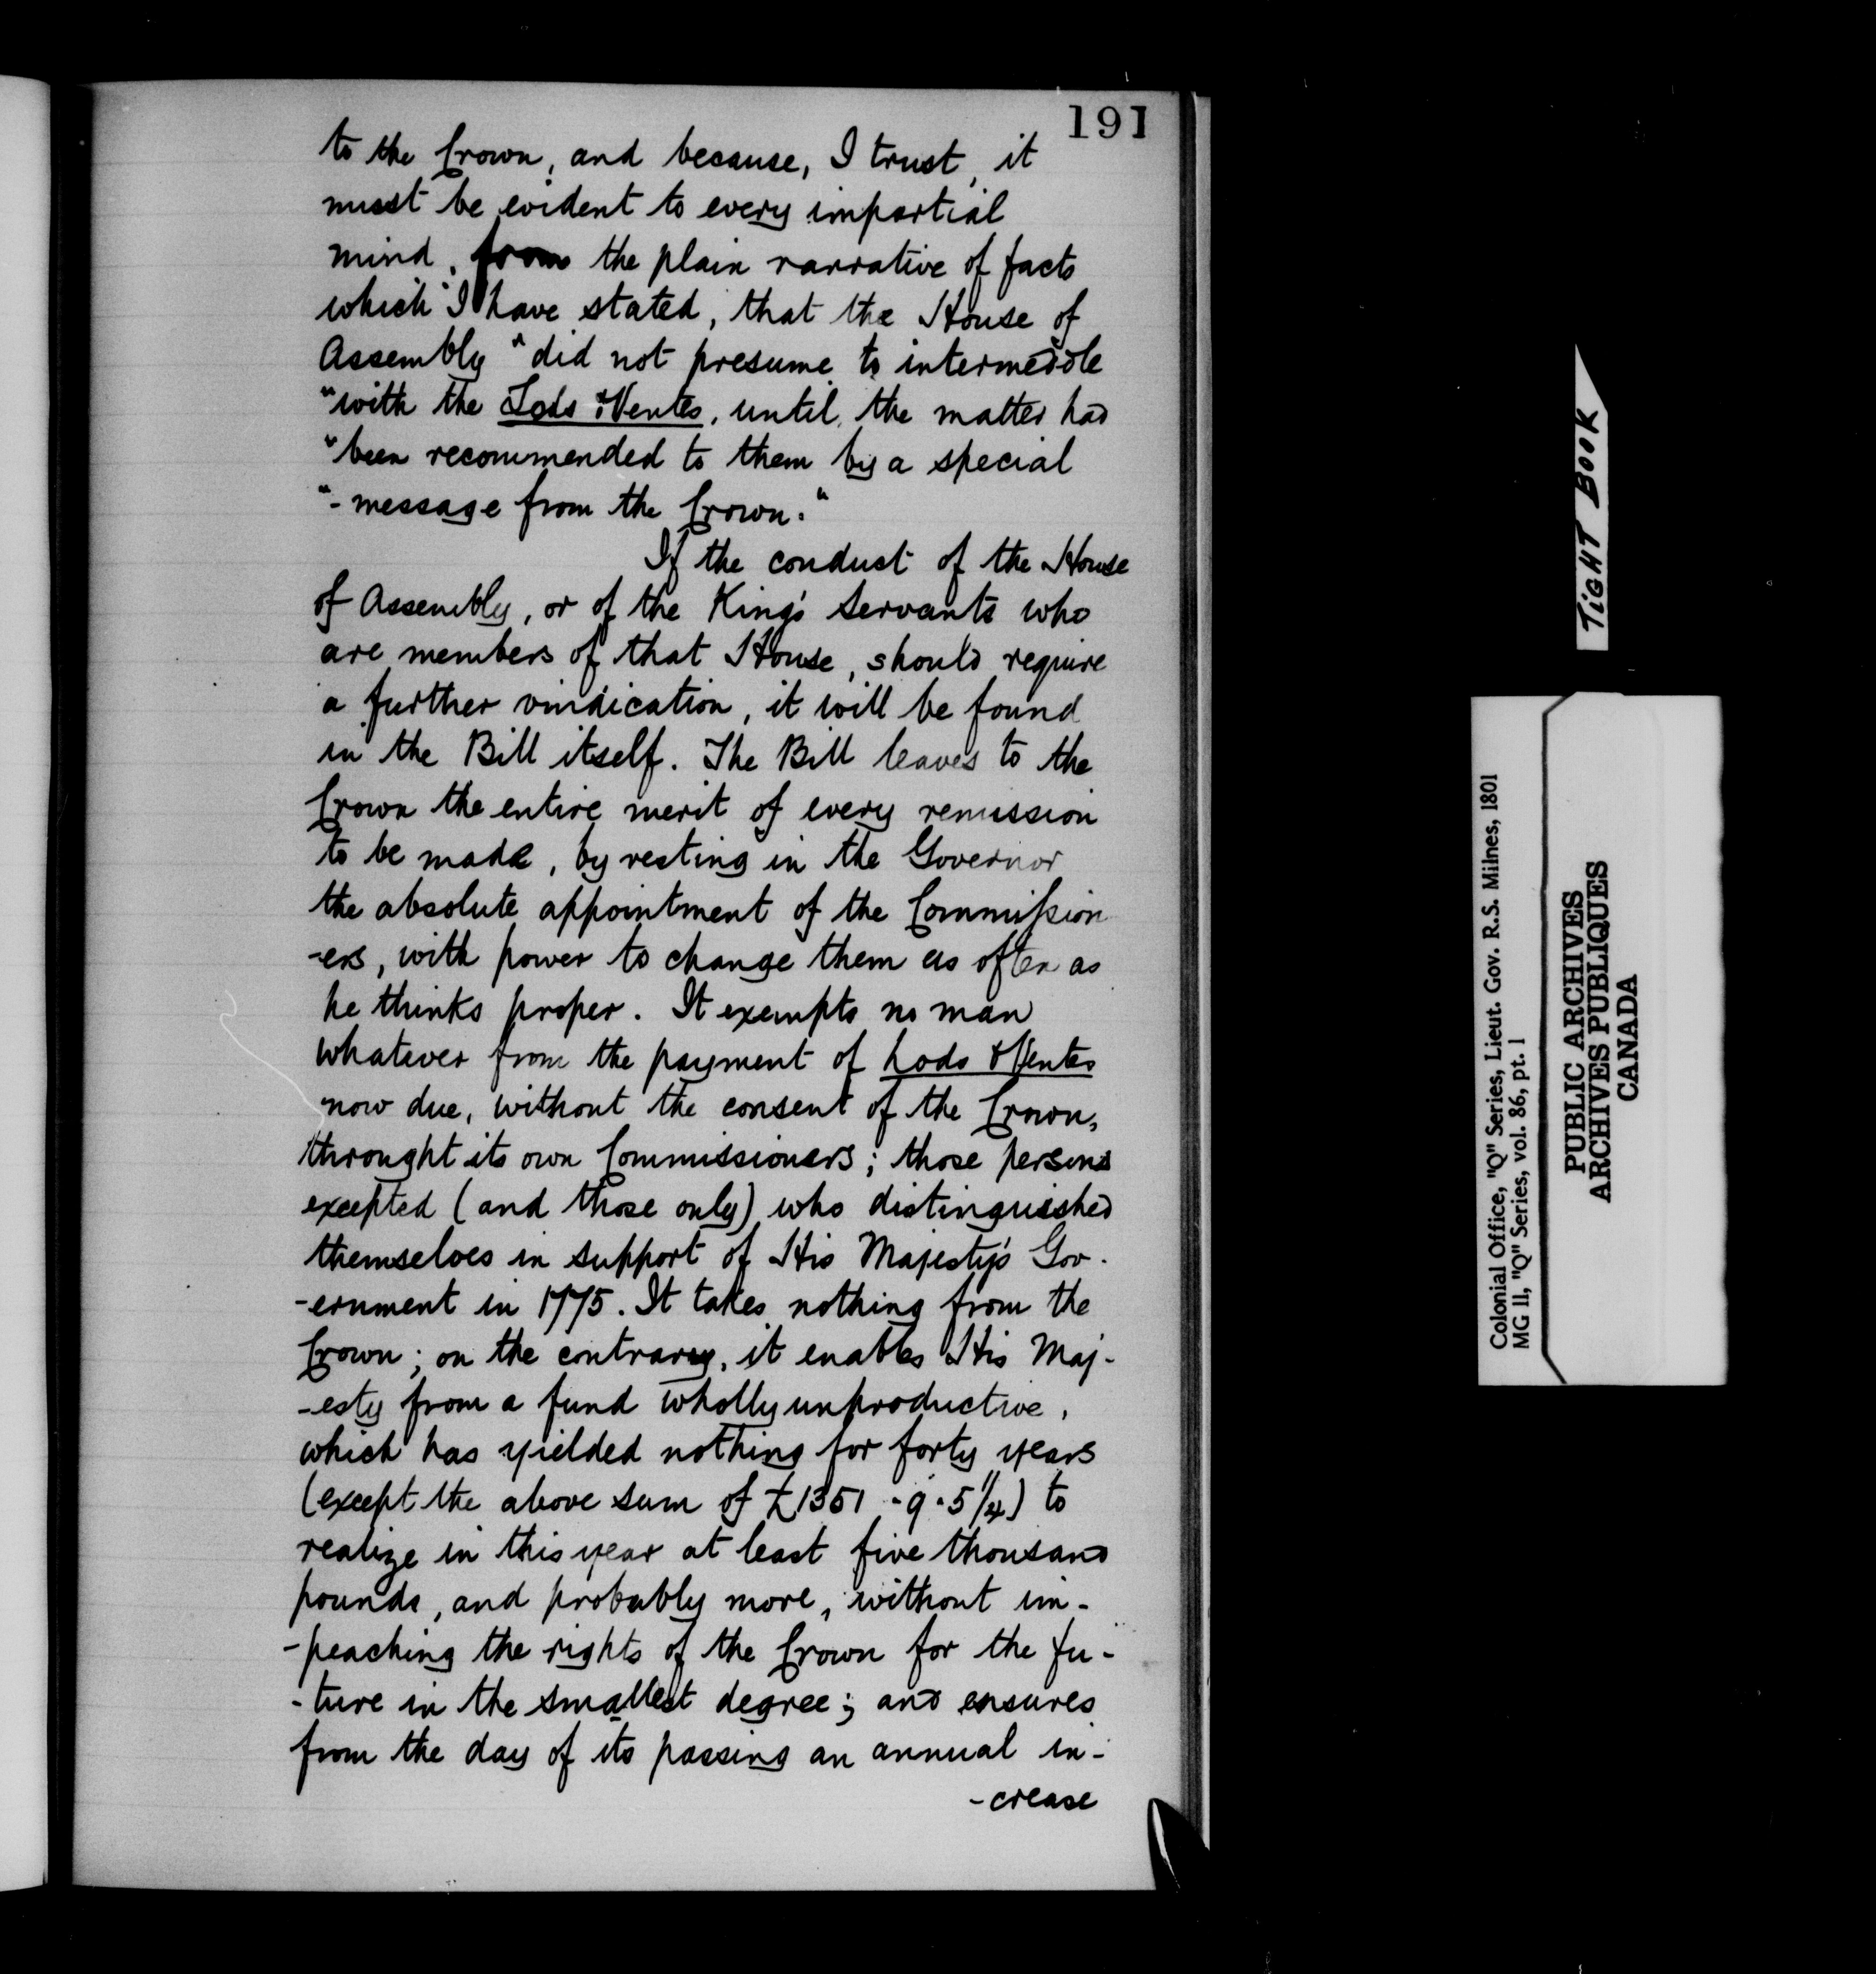 191
to the Crown, and because, I trust, it
must be evident to every impartial
mind, from the plain narrative of facts
which I have stated, that the House of
Assembly "did not presume to intermeddle
"with the Lods & Ventes, until, the matter had
"been recommended to them by a special
"-message from the Crown."
If the conduct of the House
of Assembly, or of the King's Servants who
are members of that House, should require
a further vindication, it will be found
in the Bill itself. The Bill leaves to the
Crown the entire merit of every remission
to be made, by vesting in the Governor
the absolute appointment of the Commission
-ers, with power to change them as often as
he thinks proper. It exempts no man
whatever from the payment of Lods & Ventes
now due, without the consent of the Crown,
throught its own Commissioners; those persons
excepted (and those only) who distinguished
themselves in support of His Majesty's Gov-
-ernment in 1775. It takes nothing from the
Crown; on the contrary, it enables His Maj-
-esty from a fund wholly unproductive,
which has yielded nothing for forty years
(except the above sum of £1351 - 9 - 5 1/4) to
realize in this year at least five thousand
pounds, and probably more, without im-
-peaching the rights of the Crown for the fu-
-ture in the smallest degree; and ensures
from the day of its passing an annual in-
-crease
TIGHT BOOK
Colonial Office, "Q" Series, Lieut. Gov. R.S. Milnes, 1801
MG 11, "Q" Series, vol. 86, pt. 1
PUBLIC ARCHIVES
ARCHIVES PUBLIQUES
CANADA